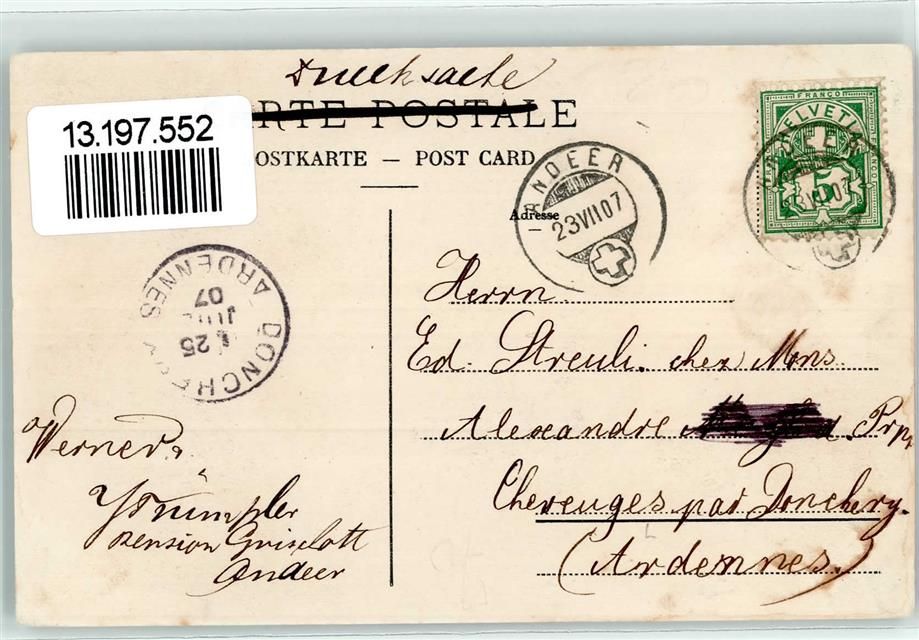 Drucksache
13.197.552
RTE POSTALE
OSTKARTE — POST CARD
ANDEER
23 VII 07
FRANCO
HELVETIA
5
Adresse
DONCHERY
25
JUIL
07
ARDENNES
Herrn
Ed. Streuli. chez Mons
Alexandre Prp.
Cheveuges par Donchery.
(Ardennes.)
Werner
Trümpler
Pension
Andeer